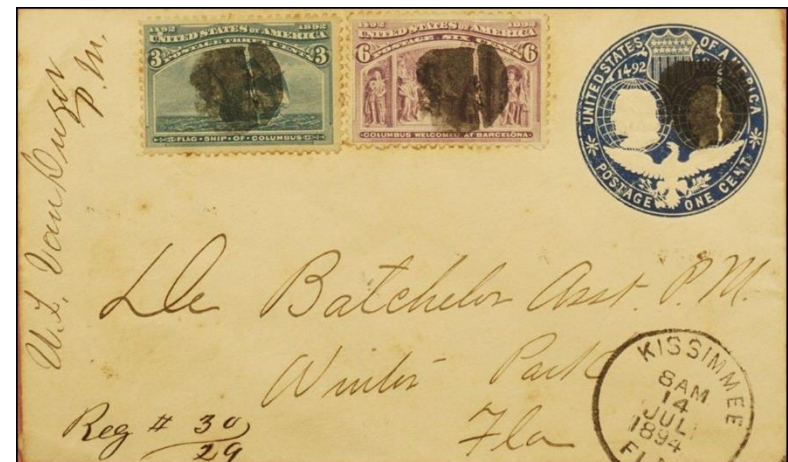 1492 1892
UNITED STATES OF AMERICA
POSTAGE THREE CENTS
3 3
FLAG·SHIP·OF·COLUMBUS
1492 1892
UNITED STATES OF AMERICA
POSTAGE SIX CENTS
6 6
COLUMBUS WELCOMED AT BARCELONA
UNITED STATES OF AMERICA
1492
POSTAGE ONE CENT
P.M.
Batchelor Asst. P.M.
Winter Park
Fla
Reg # 30
29
KISSIMMEE
8AM
14
JUL
1894